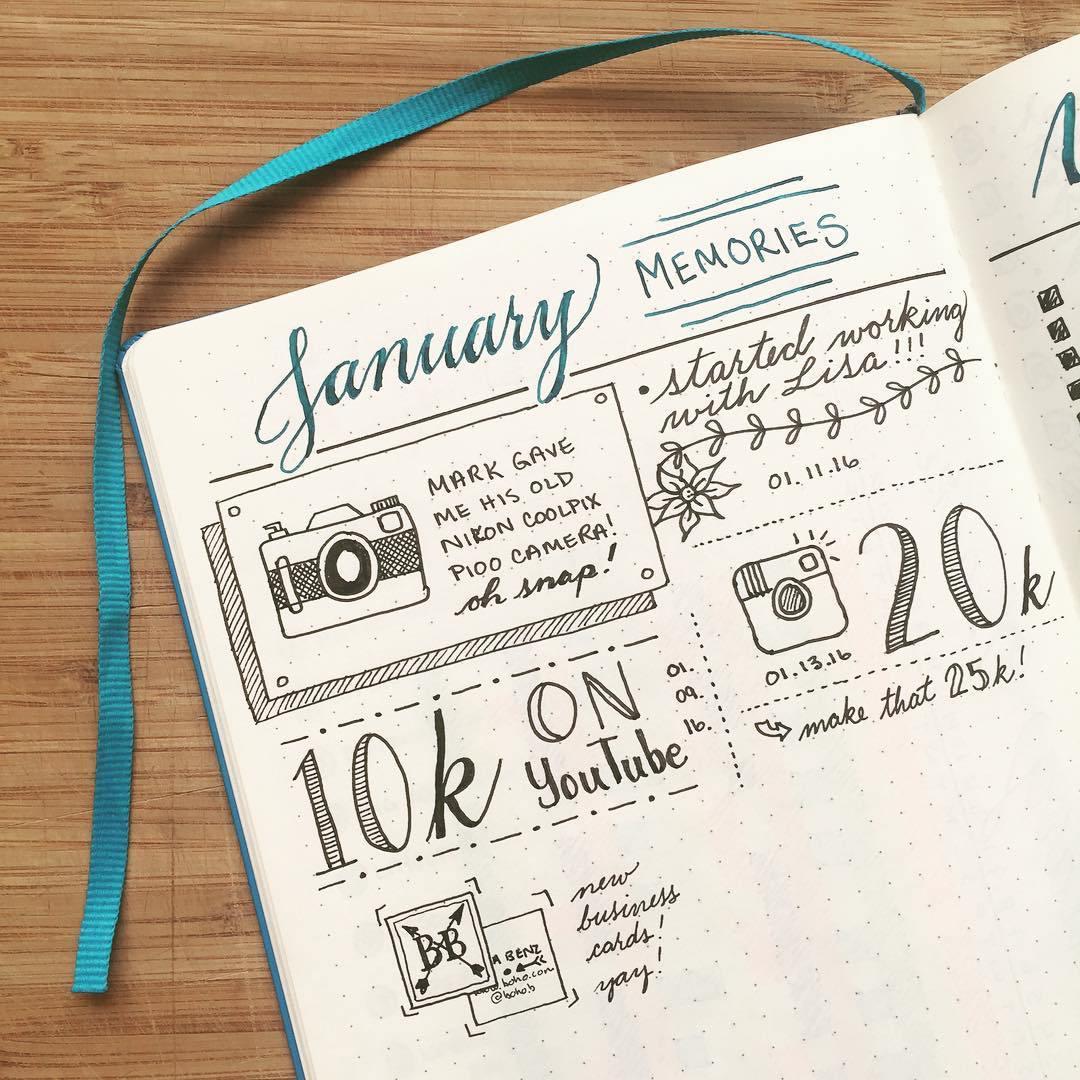 January MEMORIES
MARK GAVE
ME HIS OLD
NIKON COOLPIX
P100 CAMERA!
oh snap!
• started working
with Lisa!!!
01.11.16
20k
01.13.16
make that 25k!
10k ON
YouTube
01.
09.
16.
BB
BENZ
www.boho.com
@boho.b
new
business
cards!
yay!